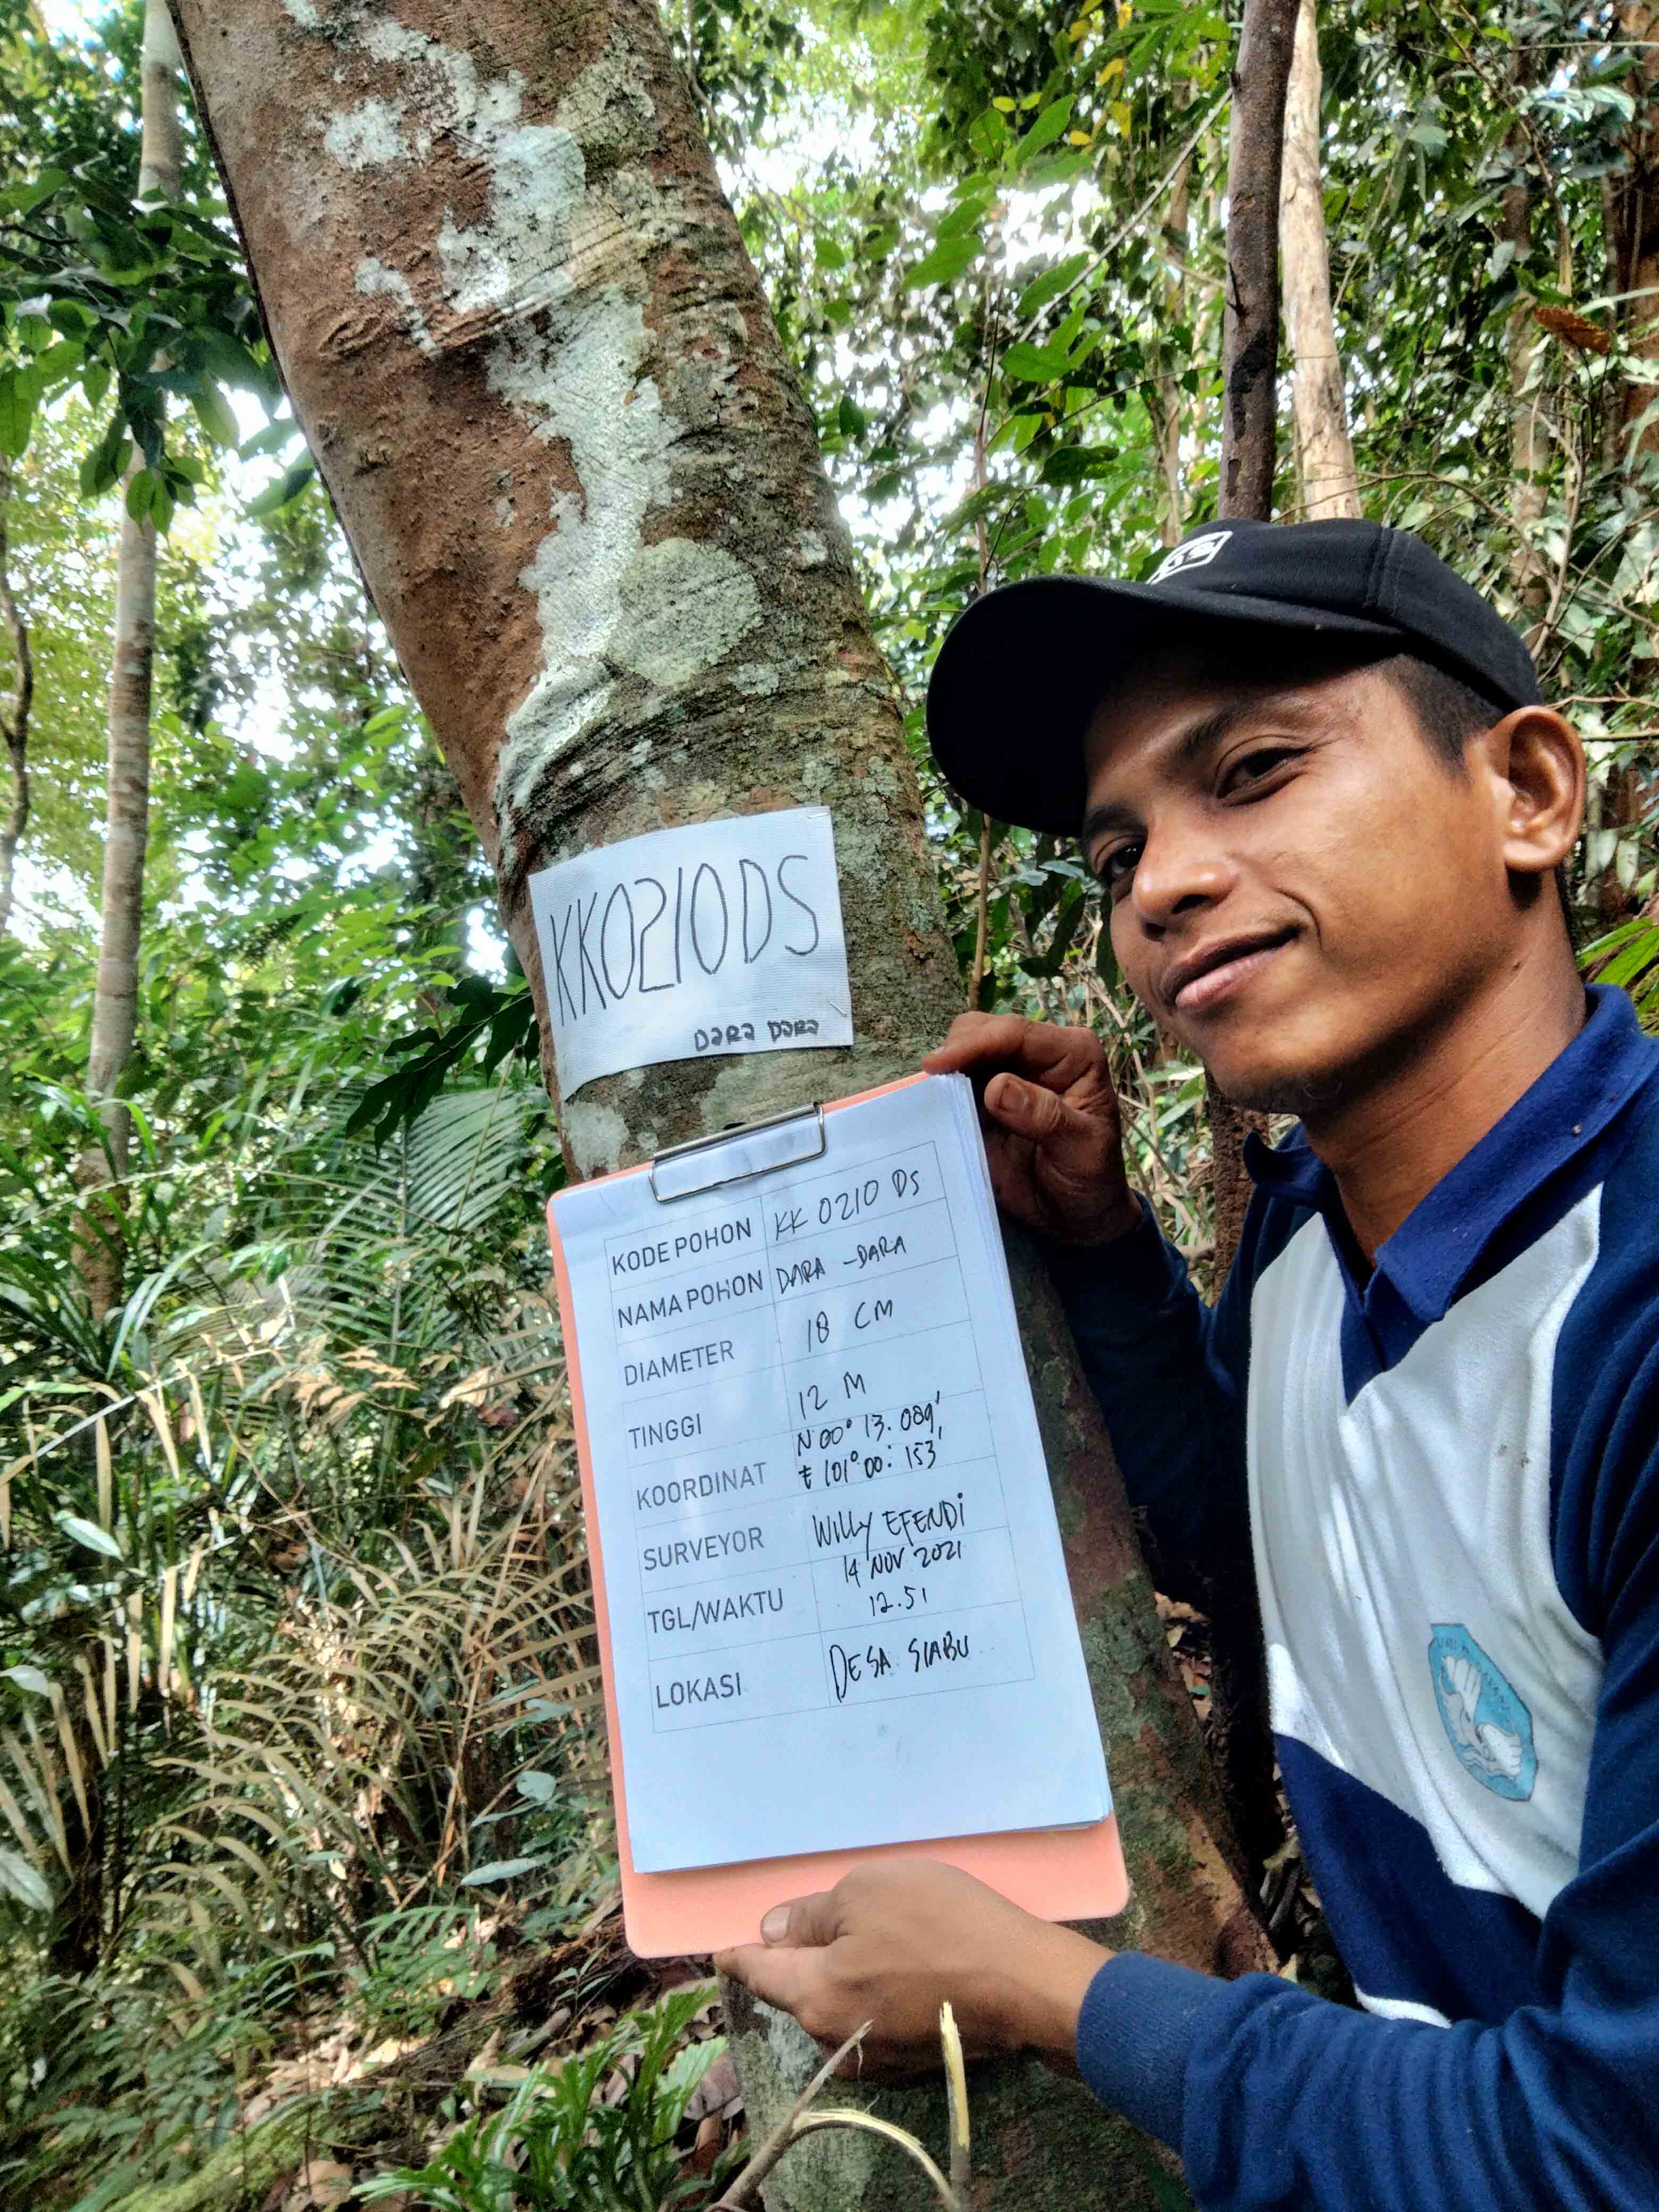 KK0210DS
DARA DARA
KODE POHON KK 0210 DS
NAMA POHON DARA - DARA
DIAMETER 18 CM
TINGGI 12 M
KOORDINAT N 00° 13. 089'
E 101° 00: 153'
SURVEYOR WILLY EFENDI
TGL/WAKTU 14 NOV 2021
12.51
LOKASI DESA SIABU